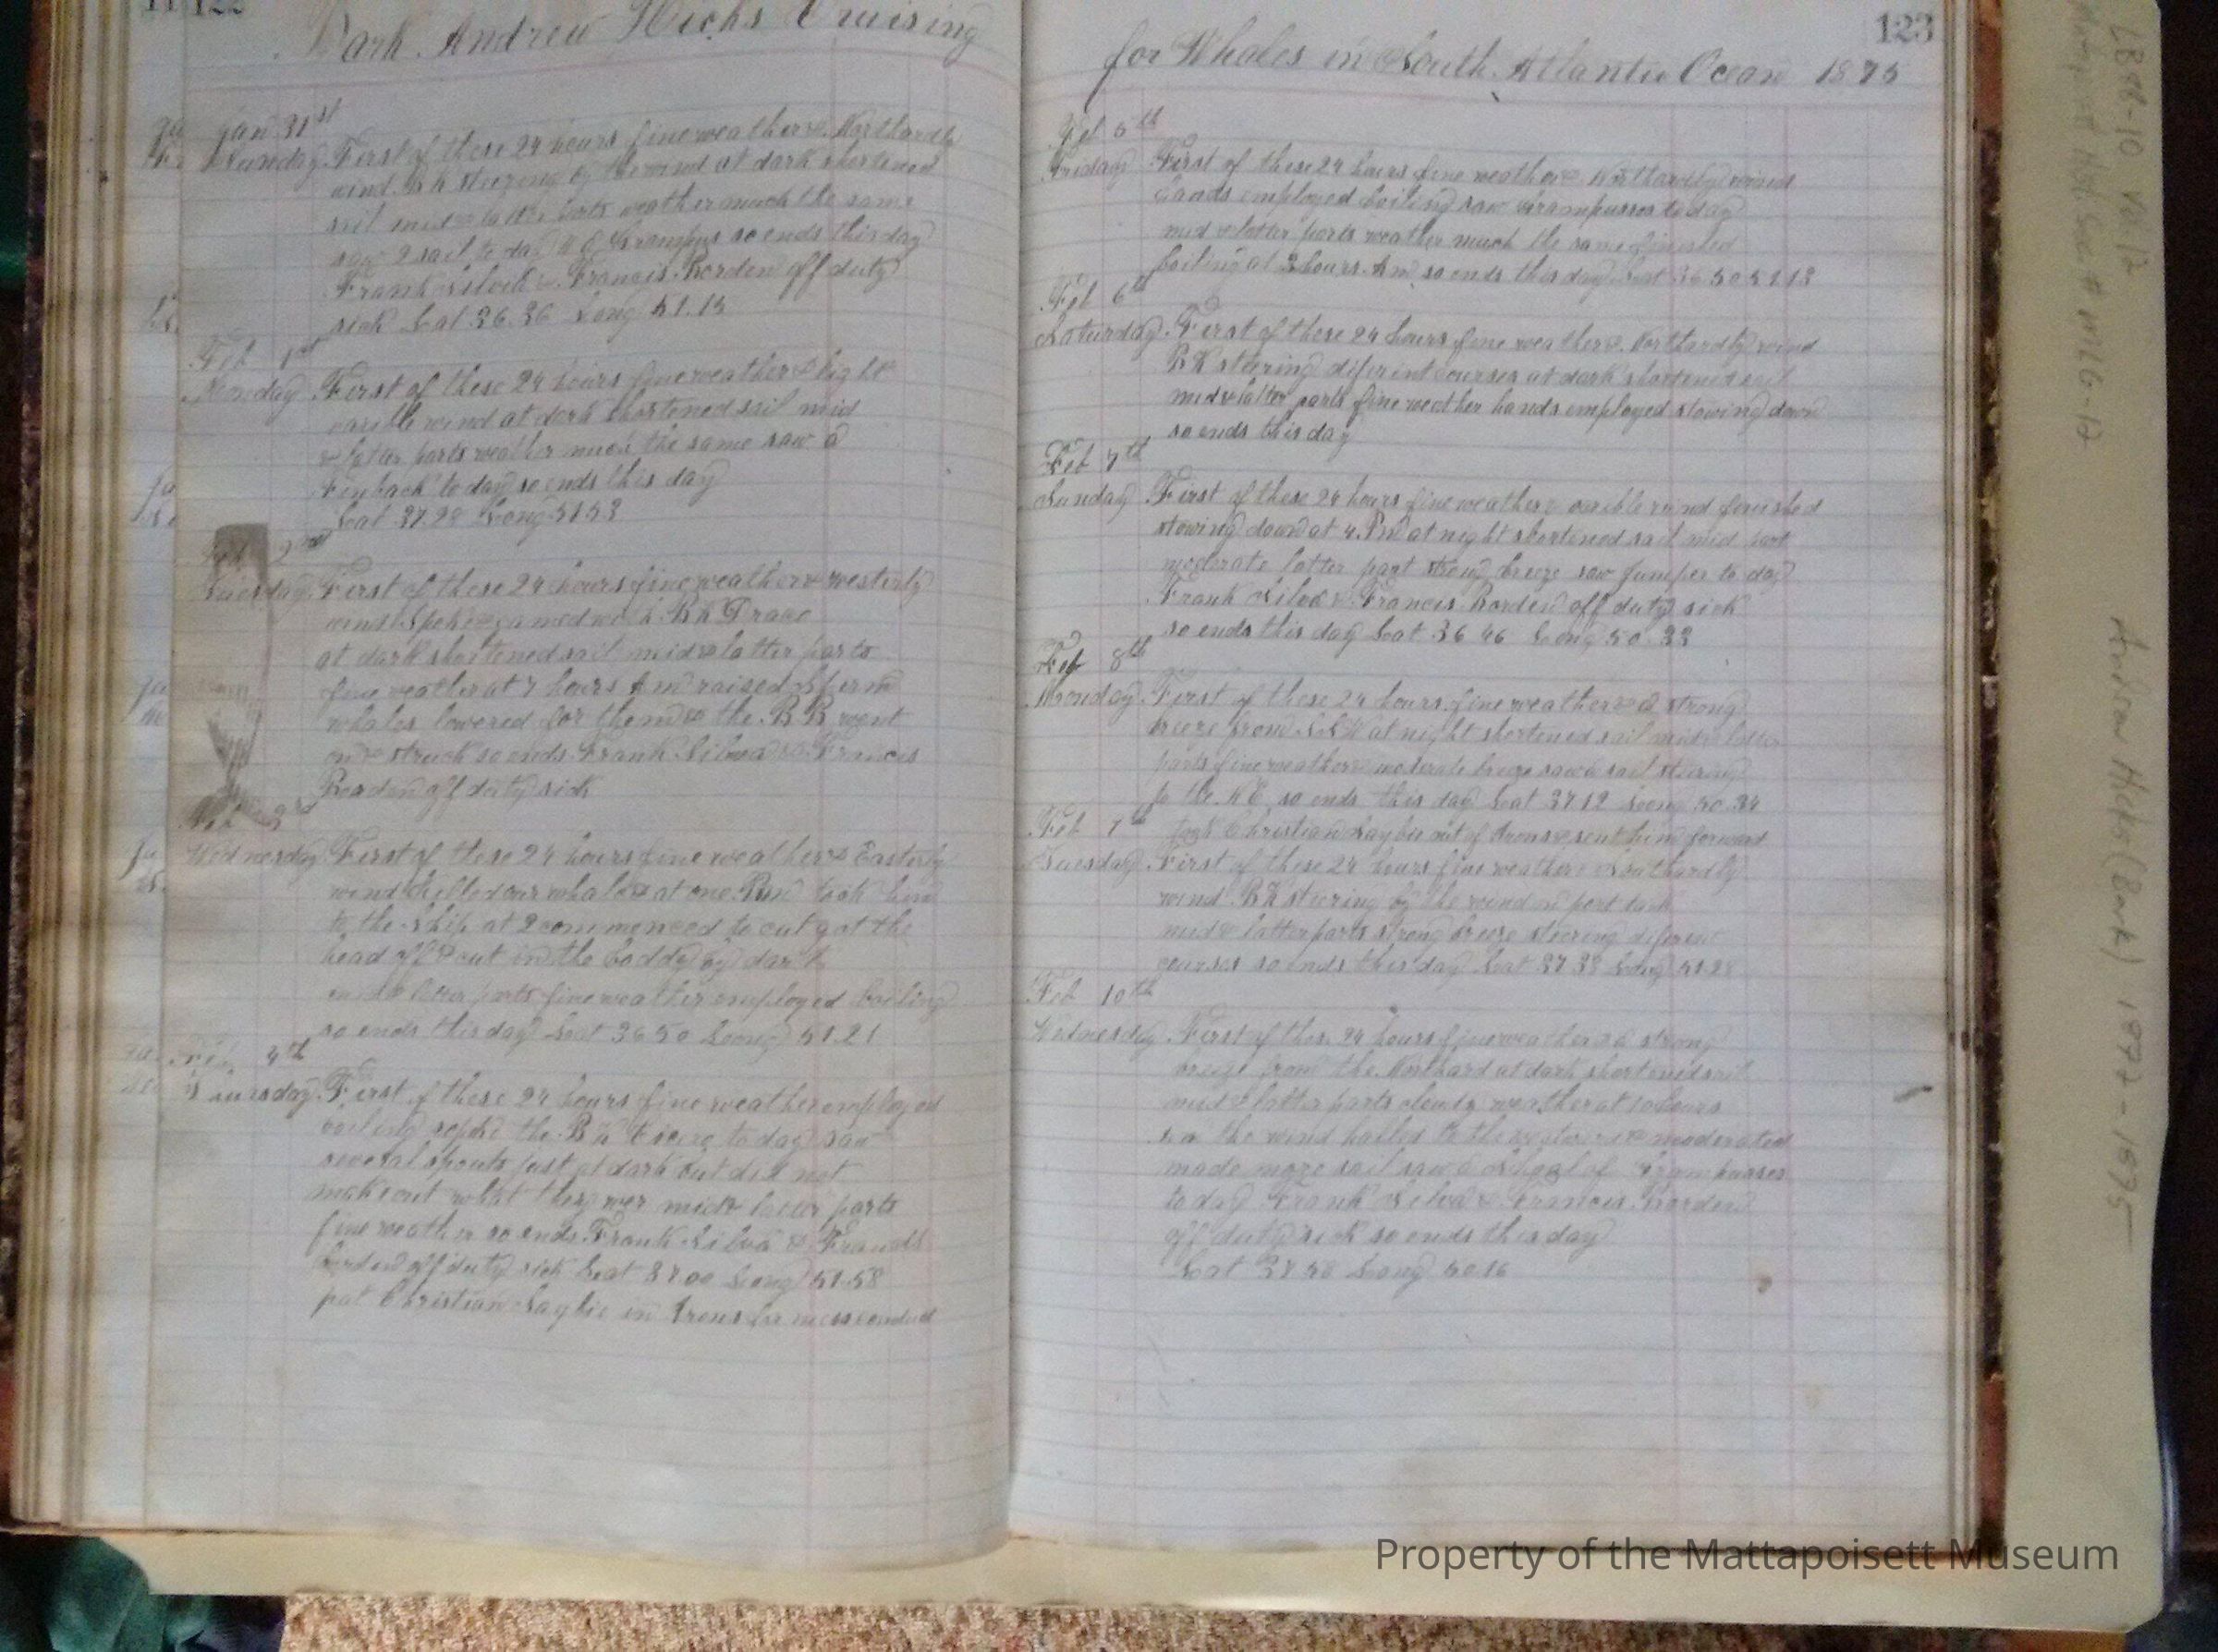 122
Bark Andrew Hicks Cruising
Jan 31st
Sunday First of these 24 hours fine weather & Northardly
wind Bk steering by the wind at dark shortened
sail mid & latter parts weather much the same
saw 2 sail to day & Grampus so ends this day
Frank Silvia & Francis Borden off duty
sick Lat 36.36 Long 51.15
Feb 1st
Monday First of these 24 hours fine weather & light
varible wind at dark shortened sail mid
& latter parts weather much the same saw a
Finback to day so ends this day
Lat 37.28 Long 51 53
Feb 2nd
Tuesday First of these 24 hours fine weather & westerly
wind Spoke & gamed with Bk Draco
at dark shortened sail mid & latter parts
fine weather at 7 hours Am raised Sperm
whales lowered for them & the BB went
on & struck so ends Frank Silvia & Francis
Borden off duty sick
Feb 3rd
Wednesday First of these 24 hours fine weather & Easterly
wind killed our whale at one Pm took him
to the Ship at 2 commenced to cut got the
head off & cut in the boddy by dark
mid & latter parts fine weather employed boiling
so ends this day Lat 36 50 Long 51.21
Feb 4th
Thursday First of these 24 hours fine weather employed
boiling the Bk to day saw
several spouts just at dark but did not
make out what they wer mid & latter parts
fine weather so ends Frank Silvia & Francis
Borden off duty sick Lat 37 00 Long 51.58
put Christian in Irons for
123
for Whales in South Atlantic Ocean 1875
Feb 5th
Friday First of these 24 hours fine weather & Northardly wind
hands employed boiling saw Grampusses to day
mid & latter parts weather much the same finished
boiling at 3 hours Am so ends this day Lat 36 50 51 13
Feb 6th
Saturday First of these 24 hours fine weather & Northardly wind
Bk steering diferint courses at dark shortened sail
mid & latter parts fine weather hands employed stowing down
so ends this day
Feb 7th
Sunday First of these 24 hours fine weather & varible wind finished
stowing down at 4 Pm at night shortened sail mid part
moderate latter part strong breeze saw Jumper to day
Frank Silvia & Francis Borden off duty sick
so ends this day Lat 36 46 Long 50.33
Feb 8th
Monday First of these 24 hours fine weather & a strong
breeze from at night shortened sail mid & latter
parts fine weather & moderate breeze saw a sail steering
to the NE so ends this day Lat 37 12 Long 50.34
Feb took Christian out of Irons & sent him forward
Tuesday First of these 24 hours fine weather & Southardly
wind Bk steering by the wind on port tack
mid & latter parts strong breeze steering diferent
courses so ends this day Lat 37 33 Long 51 28
Feb 10th
Wednesday First of these 24 hours fine weather & a strong
breeze from the Northard at dark shortened sail
mid & latter parts cloudy weather at 10 hours
Am the wind halled to the & moderated
made more sail saw a of Grampusses
to day Frank Silvia & Francis Borden
off duty sick so ends this day
Lat 37 58 Long 50.16
Andrew Hicks (Bark) 1877-1895
Property of the Mattapoisett Museum